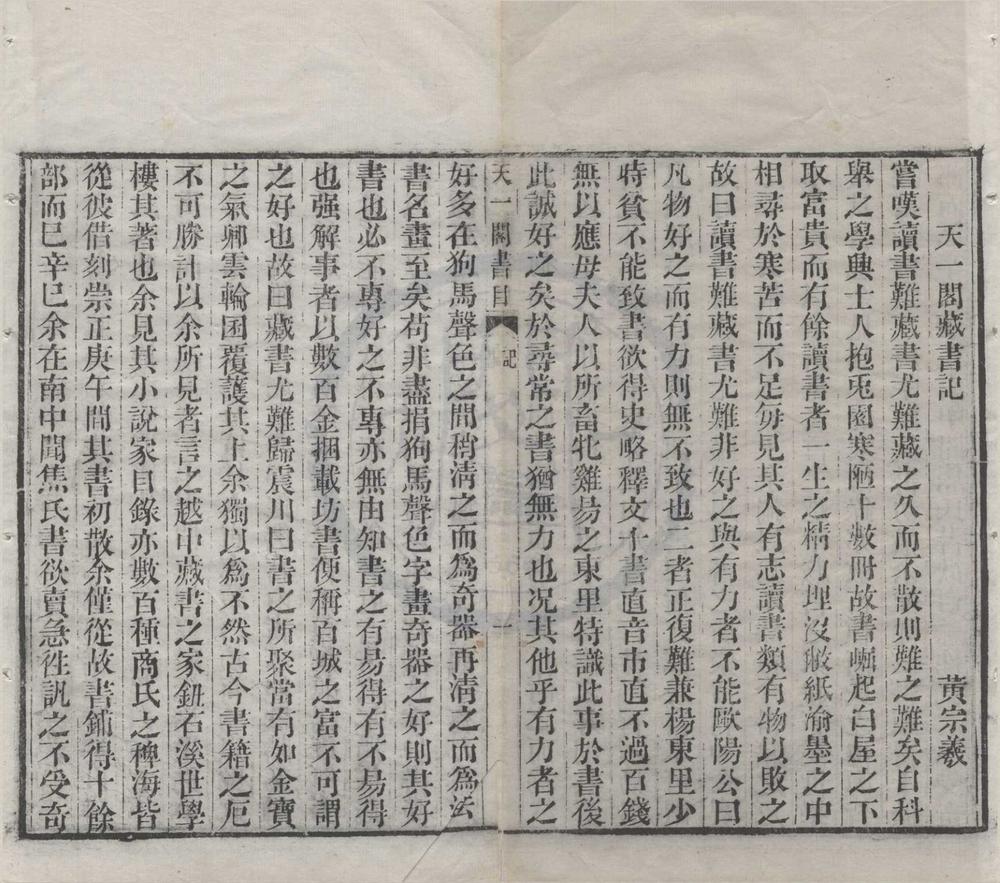 天一閣藏書記
黃宗羲
嘗嘆讀書難藏書尤難藏之久而不散則難之難矣自科
舉之學興士人抱兎園寒陋十數冊故書崛起白屋之下
取富貴而有餘讀書者一生之精力埋沒敝紙渝墨之中
相尋於寒苦而不足毎見其人有志讀書類有物以敗之
故曰讀書難藏書尤難非好之與有力者不能歐陽公曰
凡物好之而有力則無不致也二者正復難兼楊東里少
時貧不能致書欲得史略釋文十書直音市直不過百錢
無以應母夫人以所畜牝雞易之東里特識此事於書後
此誠好之矣於尋常之書猶無力也况其他乎有力者之
天一閣書目
記
好多在狗馬聲色之間稍清之而爲奇器再清之而爲法
書名畫至矣苟非盡捐狗馬聲色字畫奇器之好則其好
書也必不專好之不專亦無由知書之有易得有不易得
也强解事者以數百金捆載坊書便稱百城之富不可謂
之好也故曰藏書尤難歸震川曰書之所聚當有如金寶
之氣卿雲輪囷覆護其上余獨以爲不然古今書籍之厄
不可勝計以余所見者言之越中藏書之家鈕石溪世學
樓其著也余見其小說家目錄亦數百種商氏之稗海皆
從彼借刻崇正庚午間其書初散余僅從故書鋪得十餘
部而已辛巳余在南中聞焦氏書欲賣急徃訊之不受奇